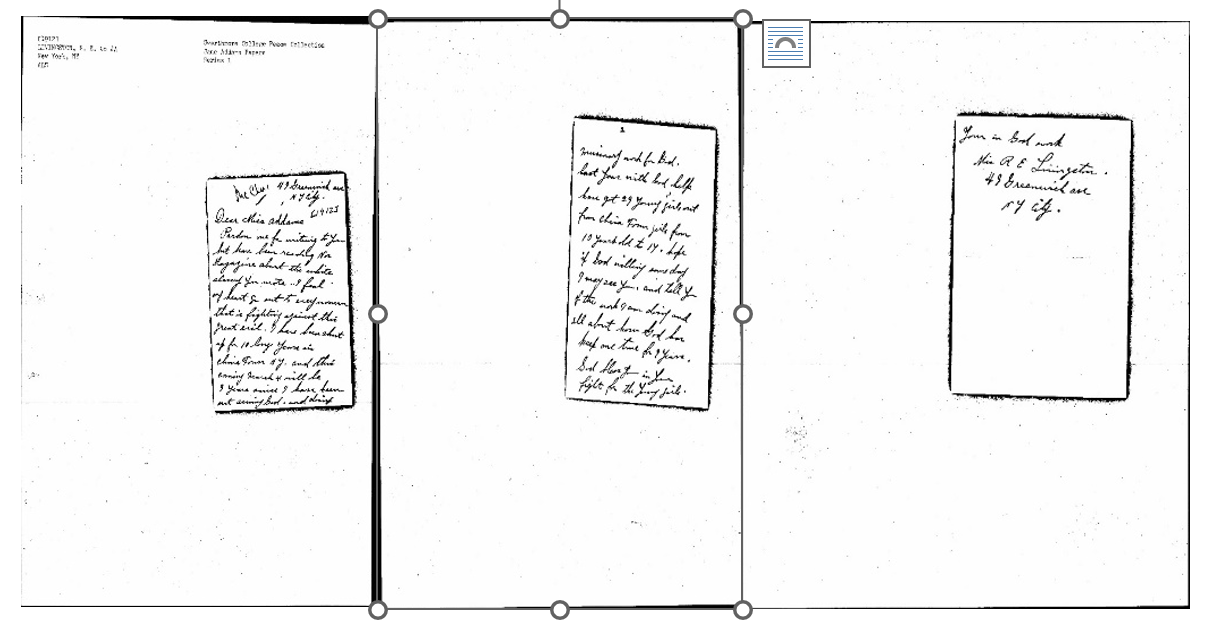 LIVINGSTON, R. E. to JA
New York, NY
Swarthmore College Peace Collection
Jane Addams Papers
Series 1
49 Greenwich ave
NY City.
Dear Miss Addams
Pardon me for writing to You
but have been reading
Magazine about the white
slavery You wrote. I feel
my heart go out to every women
that is fighting against this
great evil. I have been shut
up for 10 long Years in
China Town NY. and this
coming March 4 will be
9 Years since I have been
out serving God. and doing
2
missionary work for God.
last Year with God help
have got 29 Young girls out
from China Town girls from
10 Years old to 17. hope
if God willing some day
I may see You. and tell You
of the work I am doing and
all about how God has
keep me true for 9 Years.
God bless You in Your
fight for the Young girls.
Your in God work
Miss R E Livingston.
49 Greenwich ave
NY City.